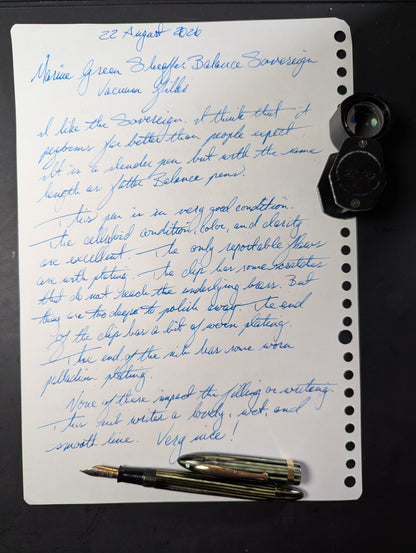 22 August 2026
Marine Green Sheaffer Balance Sovereign
Vacuum Filler
I like the Sovereign. I think that it
performs far better than people expect.
It is a slender pen but with the same
length as fatter Balance pens.
This pen is in very good condition.
The celluloid condition, color, and clarity
are excellent. The only reportable flaws
are with plating. The clip has some scratches
that do not reach the underlying brass. But
they are too deep to polish away. The end
of the clip has a bit of worn plating.
The end of the nib has some worn
palladium plating.
None of these impact the filling or writing.
This nib writes a lovely, wet, and
smooth line. Very nice!